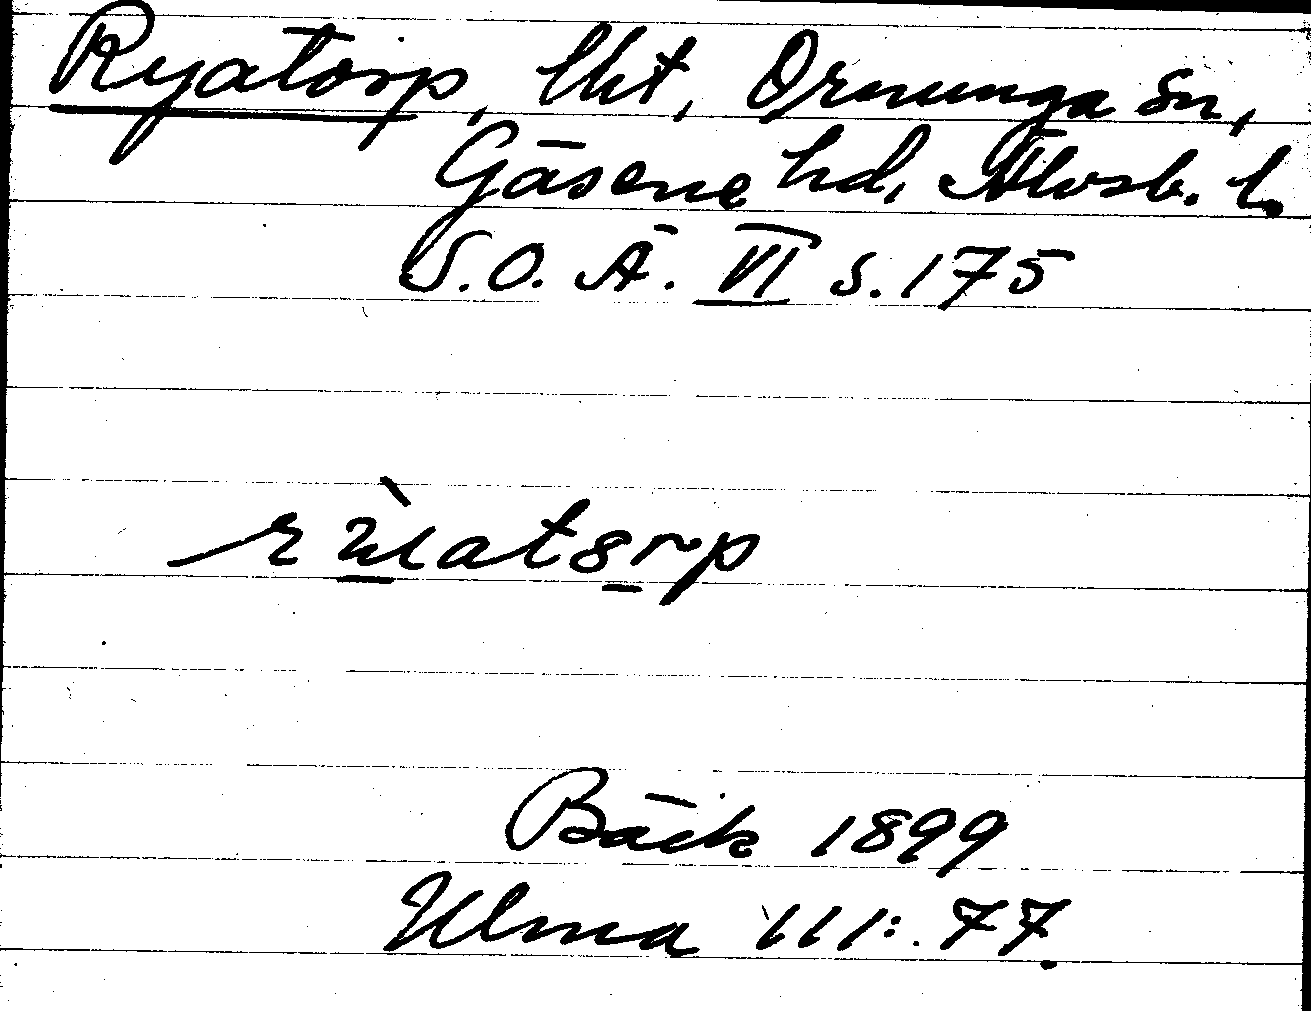 Ryatorp, lht, Ornunga sn,
Gäsene hd, Älvsb. l.
S.O.Ä. VI s. 175
Bäck 1899
Ulma 111:77.